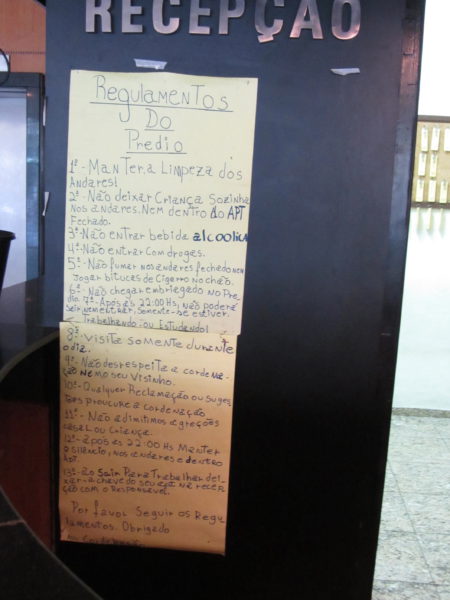 RECEPÇÃO
Regulamentos
Do
Predio
1º - Manter.a Limpeza dos
Andares!
2º - Não deixar Criança Sozinha
Nos andares. Nem dentro do APT
Fechado.
3º - Não entrar bebida alcoolica
4º - Não entrar com drogas.
5º - Não fumar nos andares fechado nem
Jogar bitucas de Cigarro no chão.
6º - Não chegar embriagado no Pre-
dio. 7º - Após as 22:00 Hs, não poderá
Sair nem entrar, somente - se estiver
Trabalhando - ou Estudando!
8º - Visita somente durante
o dia.
9º - Não desrespeita a corde na-
ção nem o seu Visinho.
10º - Qualquer Reclamação ou suges
tões proucure a cordenação
11º - Não adimitimos agreções
casal ou Criança.
12º - após as 22:00 Hs Manter
o silencio, nos andares e dentro
APT.
13º - ao Sair Para Trabalhar dei-
xar - a chave do seu apt na recep
ção com o Responsável.
Por favor Seguir os Regu
lamentos. Obrigado